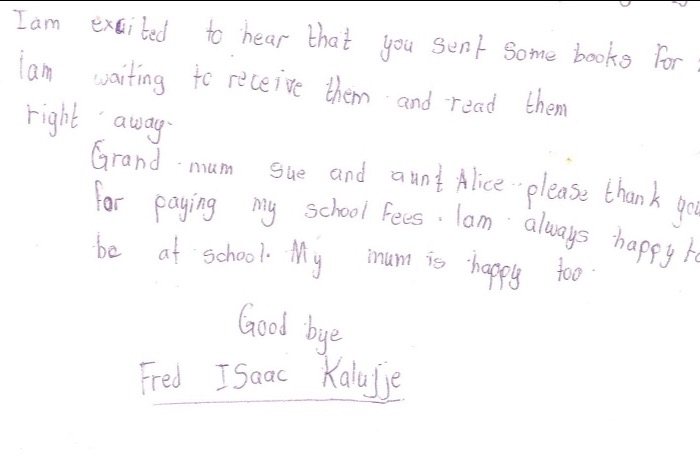 Iam exited to hear that you sent some books for
Iam waiting to receive them and read them
right away.
Grand mum Sue and aunt Alice please thank you
for paying my school fees. Iam always happy to
be at school. My mum is happy too.
Good bye
Fred ISaac Kalujje